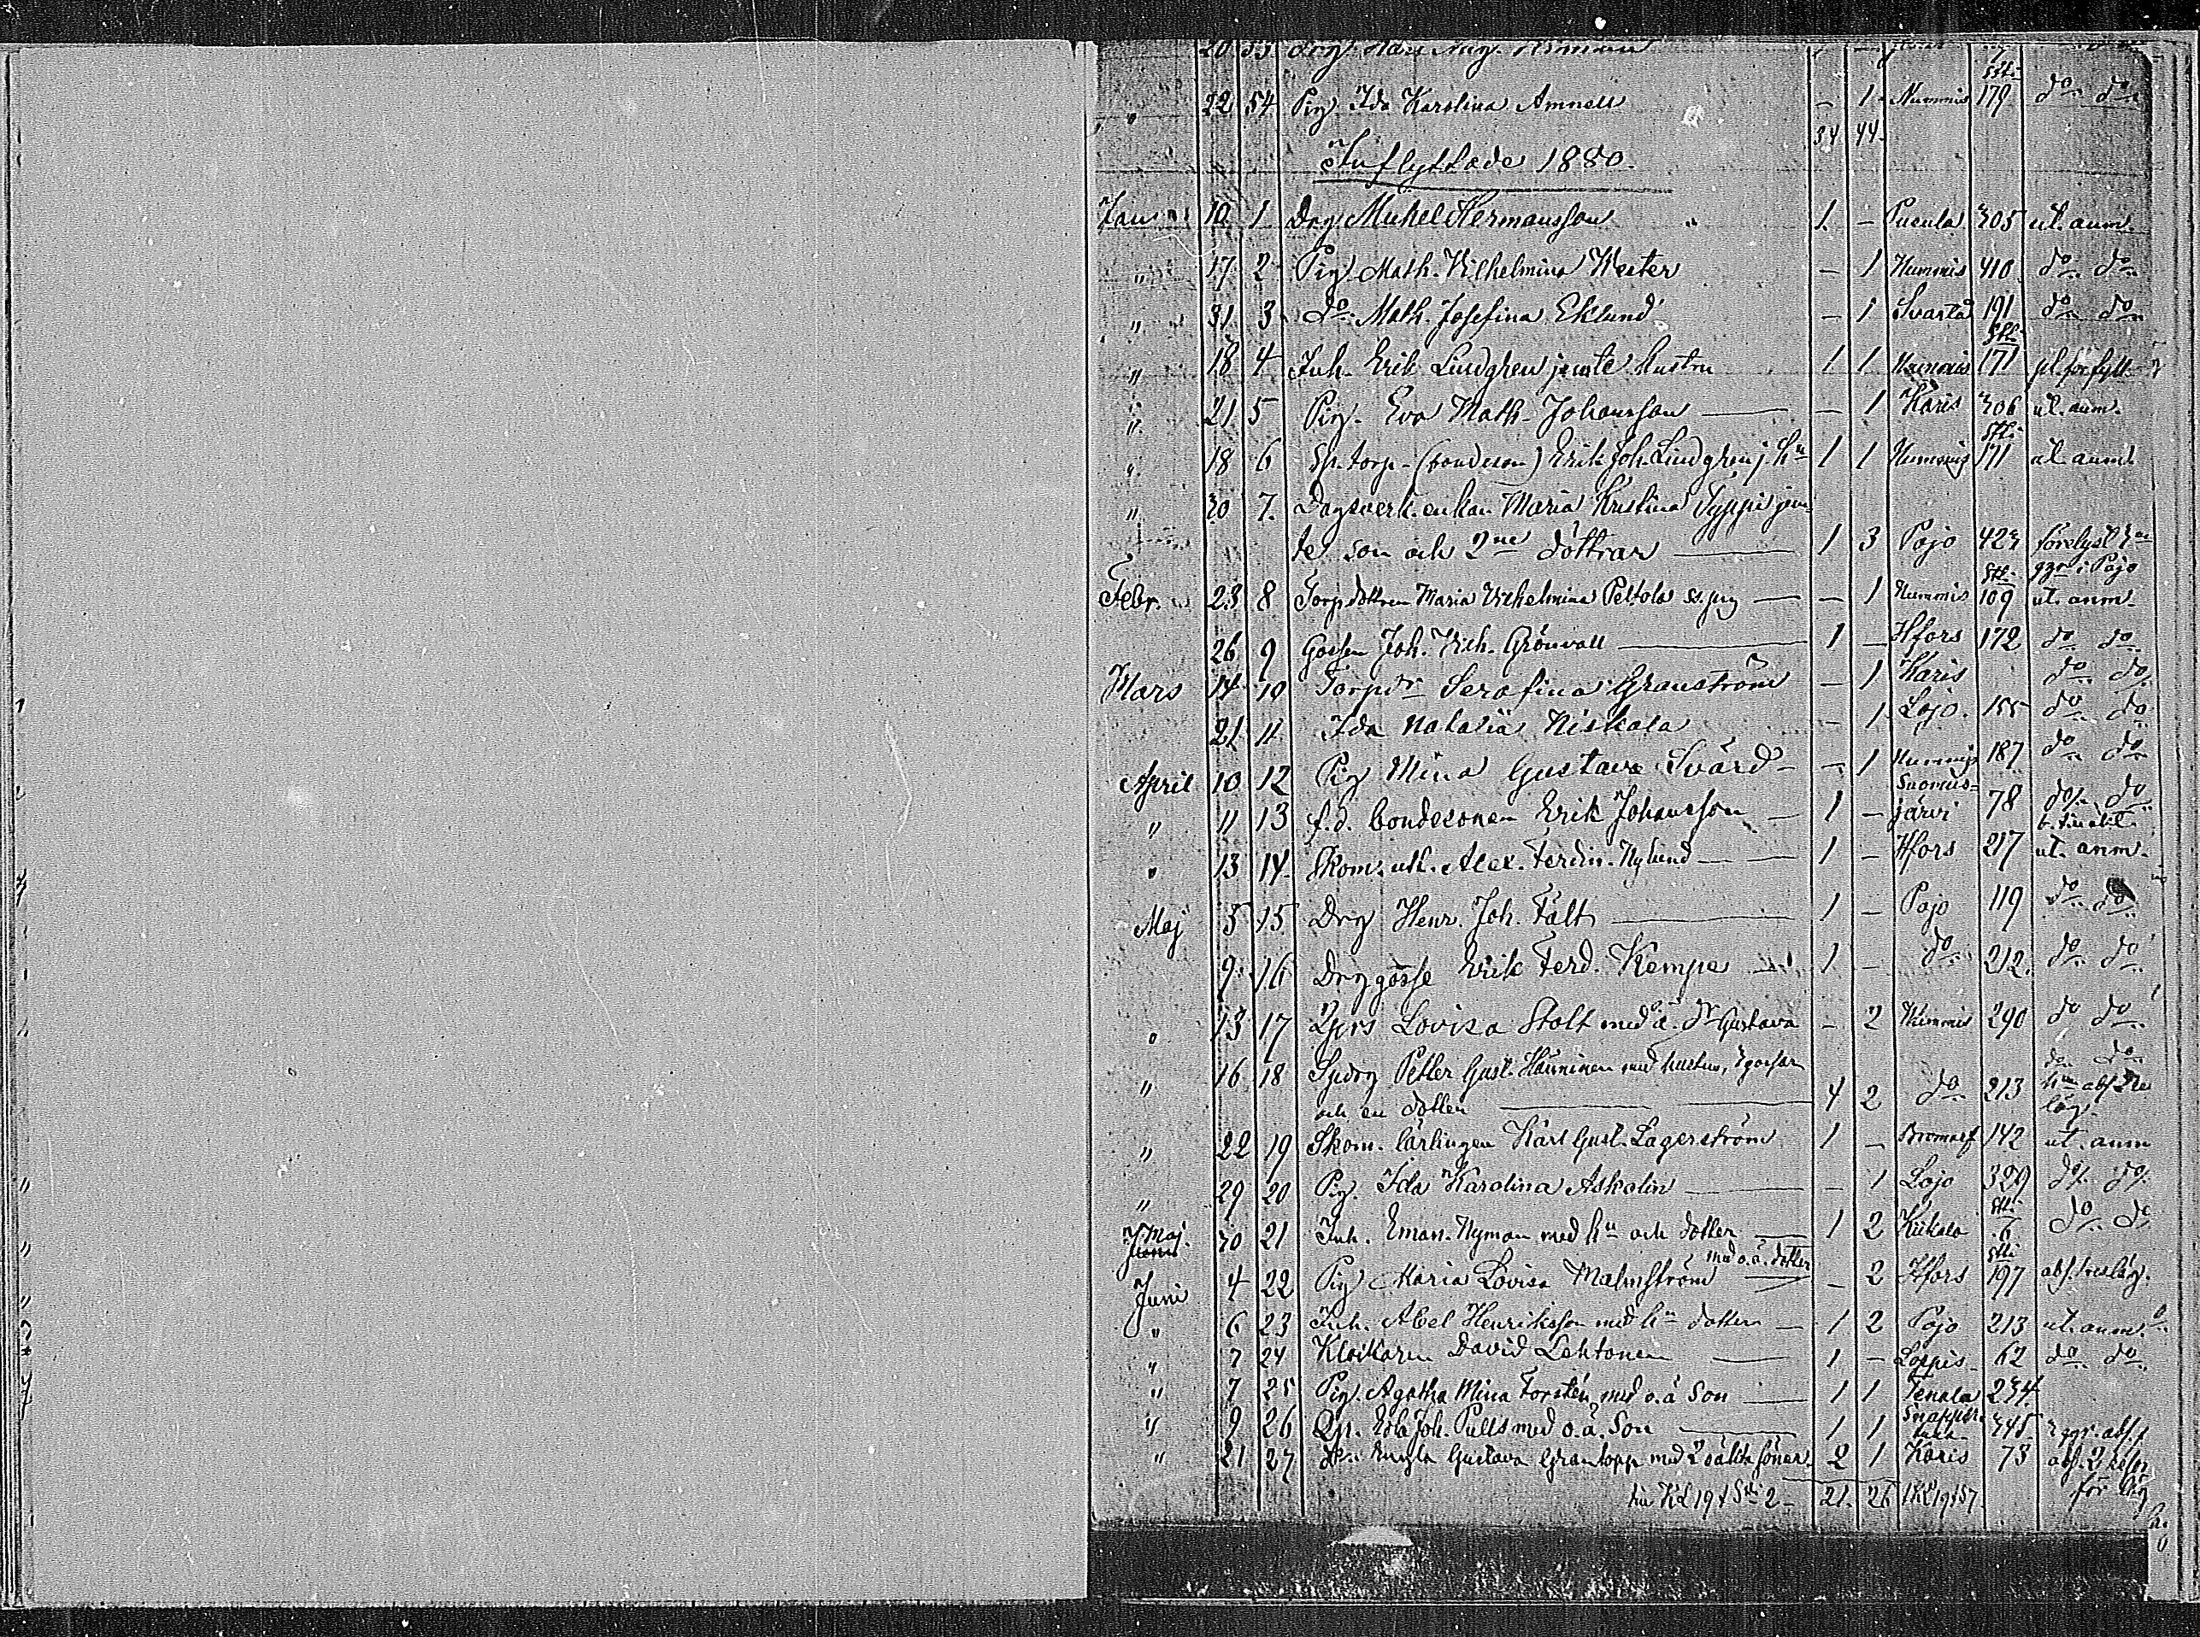 20 53 Drg.
" 22 54 Pig. Ida Karolina Amnell – 1 Nummis 179 do do
34 44
Inflyttade 1880.
Janu 10 1 Drg. Mickel Hermansson 1 – Pusula 305 ut. anm.
" 17 2 Pig. Math. Vilhelmina Wester – 1 Nummis 410 do do
" 31 3 do Math. Josefina Eklund – 1 Svartå 191 do do
" 18 4 Inh. Erik Lindgren jemte hustru 1 1 Nummis 171
" 21 5 Pig. Eva Math. Johansson – 1 Karis 306 ut. anm.
" 18 6 Sp. torp. (bondeson) Erik Joh. Lindgren j. hu 1 1 Nummis 171 ut. anm.
" 30 7. Dagsverk. enkan Maria Kristina jem-
te son och 2ne döttrar 1 3 Pojo 423
Febr. 23 8 Torp. dottren Maria Vilhelmina Peltola – 1 Nummis 109 ut. anm.
26 9 Gossen Joh. Vilh. Grönvall 1 – Hfors 172 do do
Mars 14 10 Torp. dr Serafina Granström – 1 Karis do do
21 11 Ida Natalia Niskala – 1 Lojo. 155 do do
April 10 12 Pig Mina Gustava Svärd – 1 Nummis 187 do do
" 11 13 f.d. bondesonen Erik Johansson 1 – Suomus-
järvi 78 do do
" 13 14. Skom. Alex. Ferdin. Nylund 1 – Hfors 217 ut. anm.
Maj 5 15 Drg Henr. Joh. Fält 1 – Pojo 119 do do
9 16 Drg gosse Erik Ferd. Kempe 1 – do 212. do do
" 13 17 Lovisa Stolt med o.ä. dr Gustava – 2 Nummis 290 do do
" 16 18 Petter Gust. Hänninen med hustru, 3 gossar
och en dotter 4 2 do 213
" 22 19 Skom. lärlingen Karl Gust. Lagerström 1 – Bromarf 142 ut. anm
" 29 20 Pig. Ida Karolina Askolin – 1 Lojo 329 do do
Maj. 30 21 Inh. Eman. Nyman med hu och dotter 1 2 Kiikala 6 do do
Juni 4 22 Pig Maria Lovisa Malmström med o.ä. dotter – 2 Hfors 197
" 6 23 Inh. Abel Henriksson med hu dotter 1 2 Pojo 213 ut. anm.
" 7 24 Klockaren David Lehtonen 1 – Loppis 62 do do
" 7 25 Pig. Agatha Mina Forstén med o.ä son 1 1 Tenala 234.
" 9 26 Joh. med o.ä. son 1 1 Snapper-
tuna 345.
" 21 27 Gustava Grantopp med 2 oäkta söner. 2 1 Karis 73
21. 26